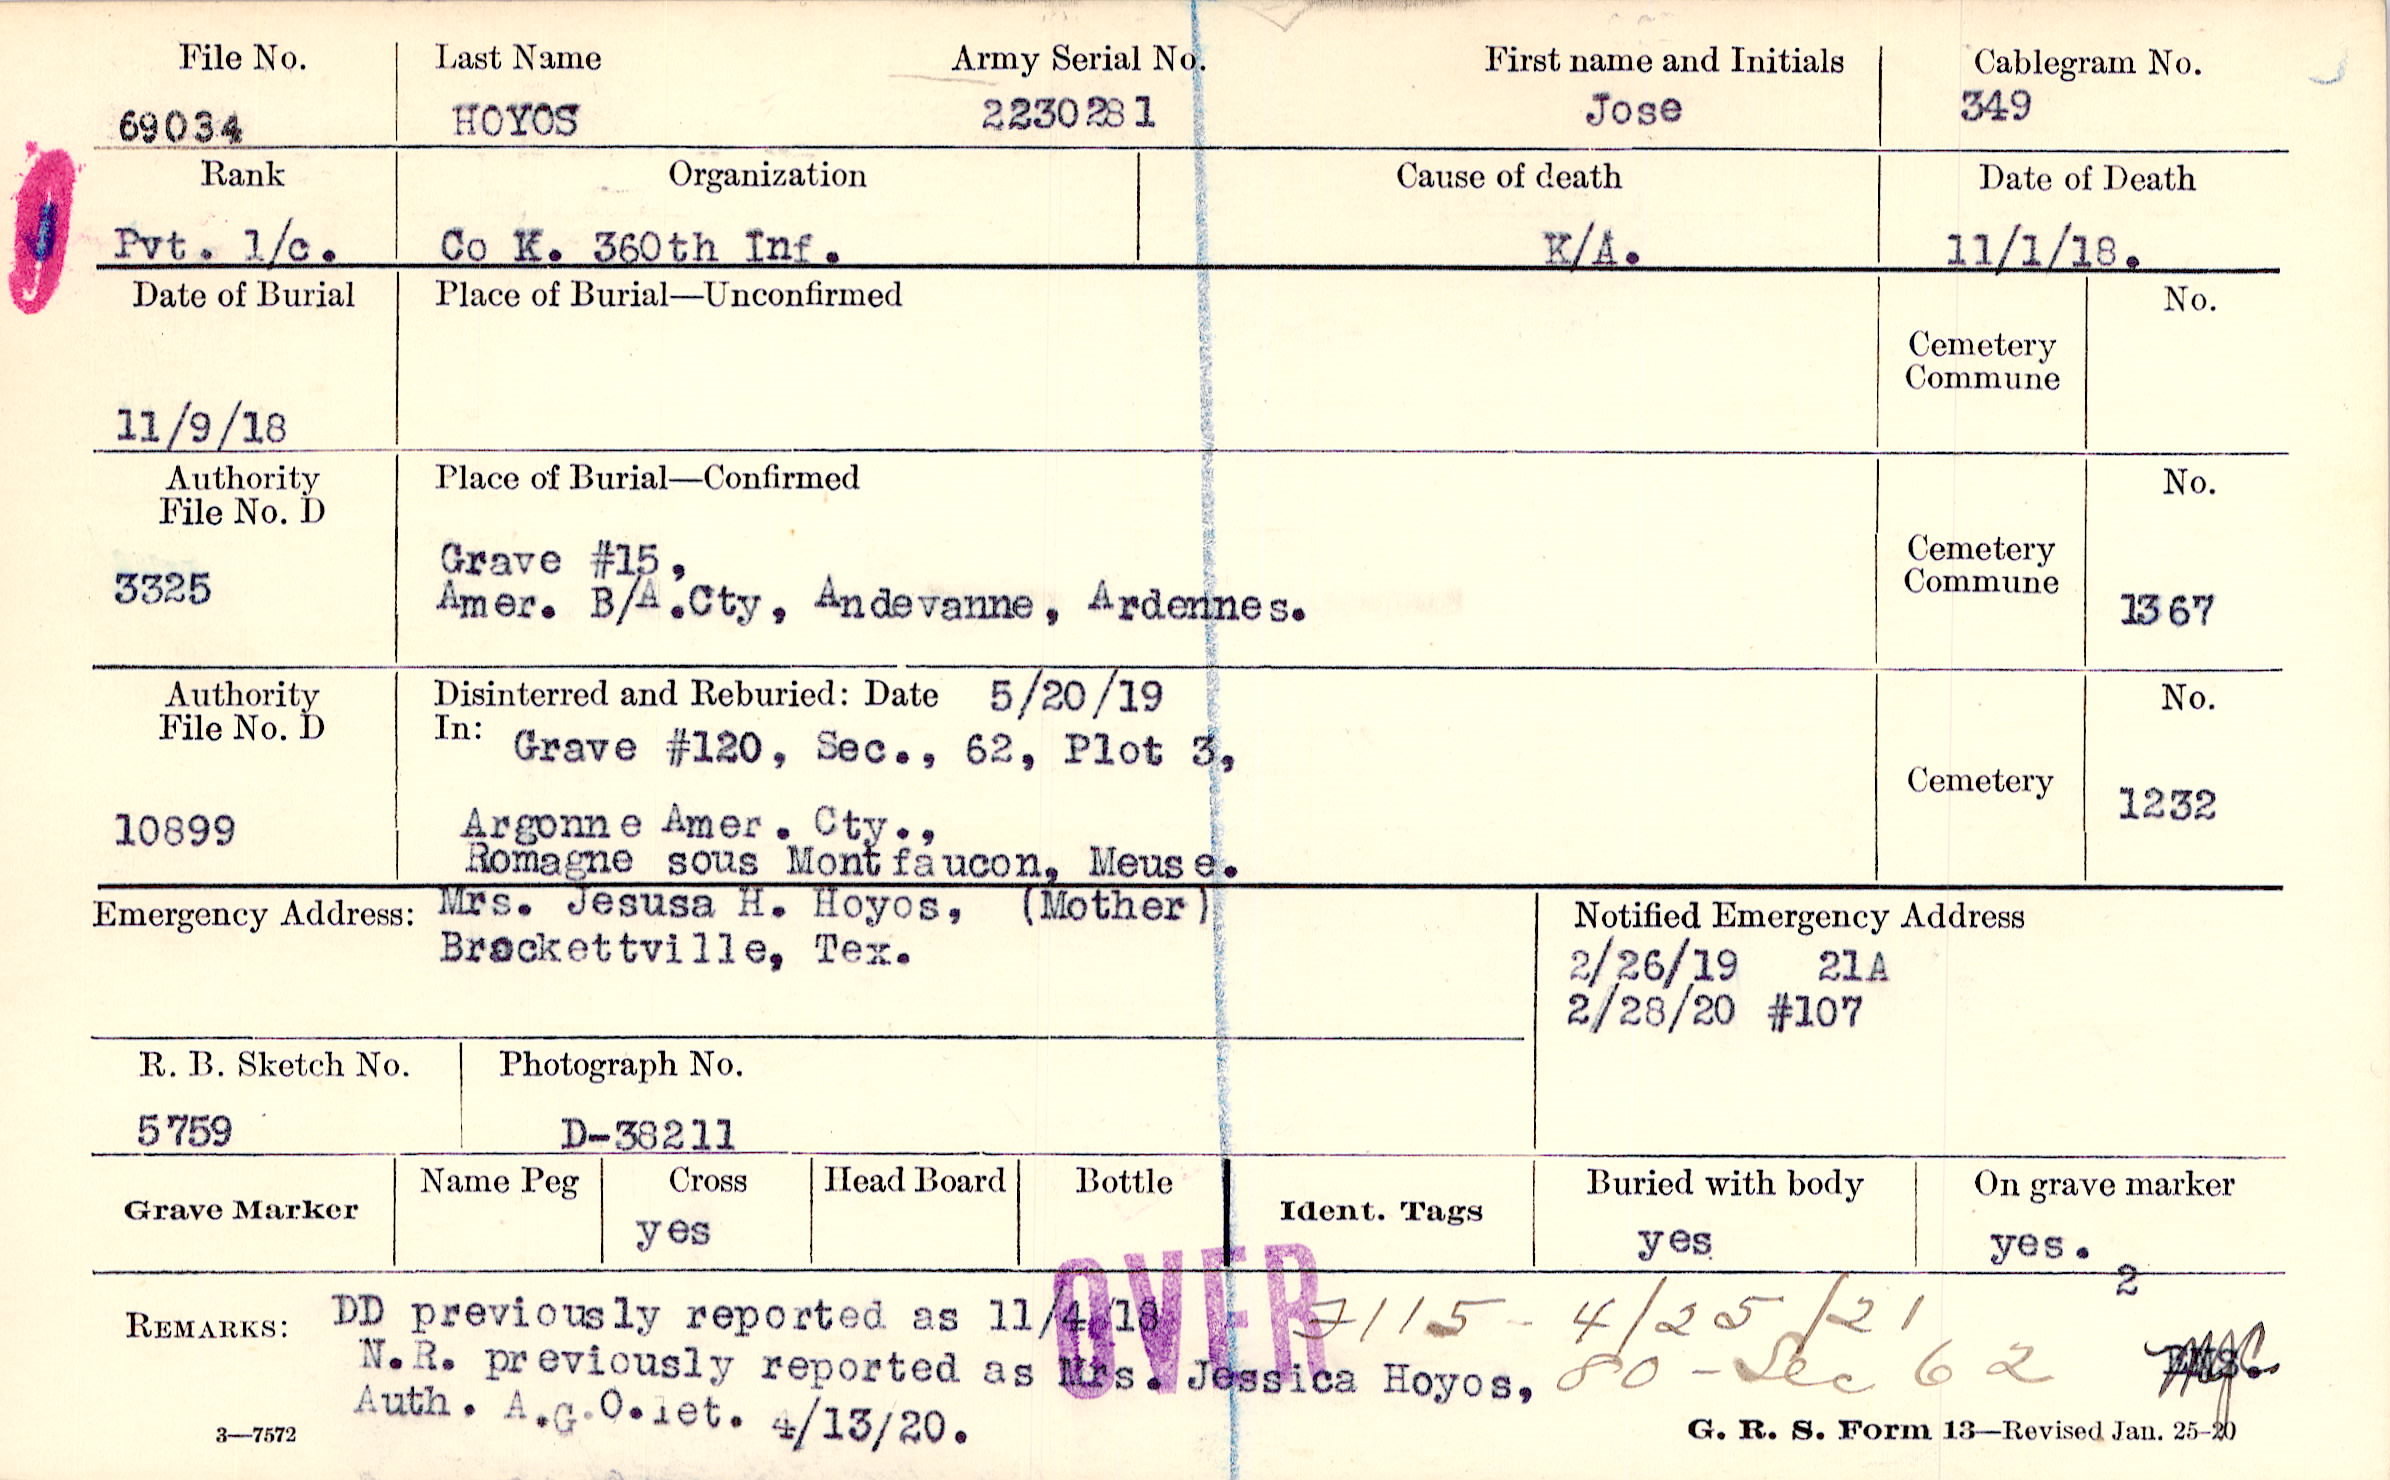 File No. Last Name Army Serial No. First name and Initials Cablegram No.
69034 HOYOS 2230281 Jose 349
Rank Organization Cause of death Date of Death
Pvt. 1/c. Co K. 360th Inf. K/A. 11/1/18.
Date of Burial Place of Burial—Unconfirmed No.
Cemetery
Commune
11/9/18
Authority Place of Burial—Confirmed No.
File No. D
Grave #15, Cemetery
3325 Amer. B/A.Cty, Andevanne, Ardennes. Commune 1367
Authority Disinterred and Reburied: Date 5/20/19 No.
File No. D In: Grave #120, Sec., 62, Plot 3,
Cemetery
10899 Argonne Amer. Cty., 1232
Romagne sous Montfaucon, Meuse.
Emergency Address: Mrs. Jesusa H. Hoyos, (Mother) Notified Emergency Address
Brackettville, Tex. 2/26/19 21A
2/28/20 #107
R. B. Sketch No. Photograph No.
5759 D-38211
Grave Marker Name Peg Cross Head Board Bottle Ident. Tags Buried with body On grave marker
yes yes yes.
2
OVER
REMARKS: DD previously reported as 11/4/18 7115 - 4/25/21
N.R. previously reported as Mrs. Jessica Hoyos, 80 - Sec 62
Auth. A.G.O.let. 4/13/20.
3—7572 G. R. S. Form 13—Revised Jan. 25-20